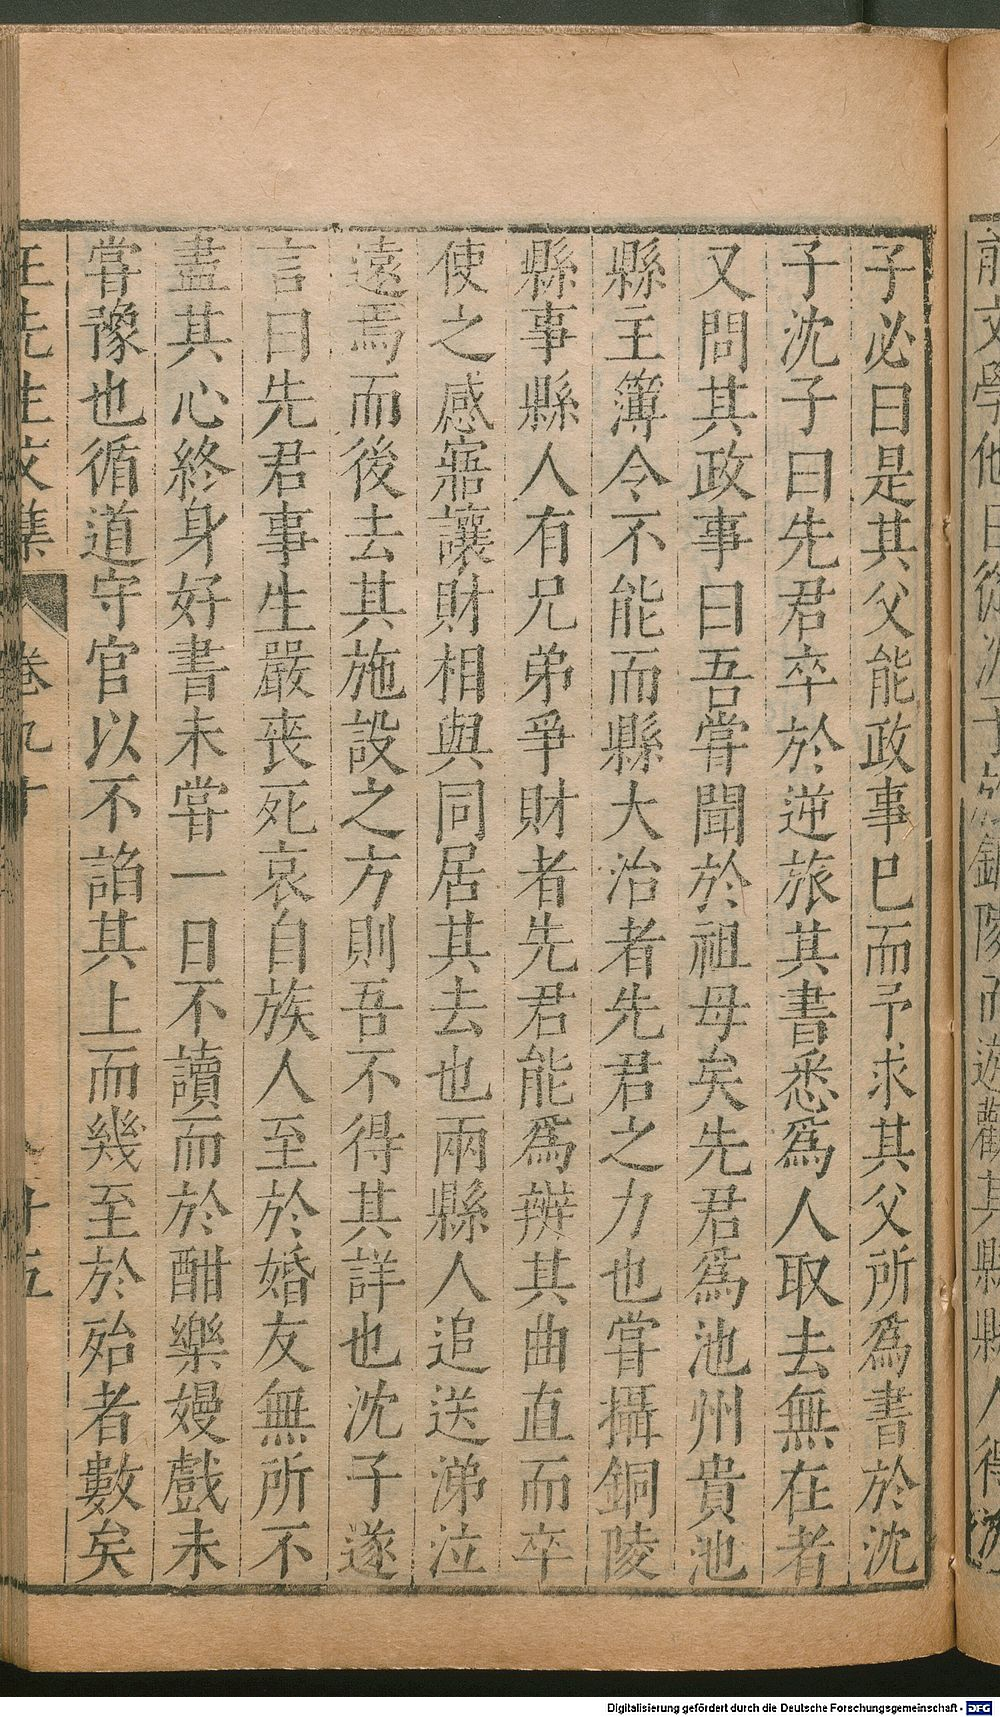 子必曰是其父能政事巳而予求其父所爲書於沈
子沈子曰先君卒於逆旅其書悉爲人取去無在者
又問其政事曰吾甞聞於祖母矣先君爲池州貴池
縣主簿令不能而縣大治者先君之力也甞攝銅陵
縣事縣人有兄弟爭財者先君能爲辨其曲直而卒
使之感寤讓財相與同居其去也兩縣人追送涕泣
遠焉而後去其施設之方則吾不得其詳也沈子遂
言曰先君事生嚴喪死哀自族人至於婚友無所不
盡其心終身好書未甞一日不讀而於酣樂嫚戲未
甞豫也循道守官以不諂其上而幾至於殆者數矣
王先生文集 卷九十
Digitalisierung gefördert durch die Deutsche Forschungsgemeinschaft - DFG